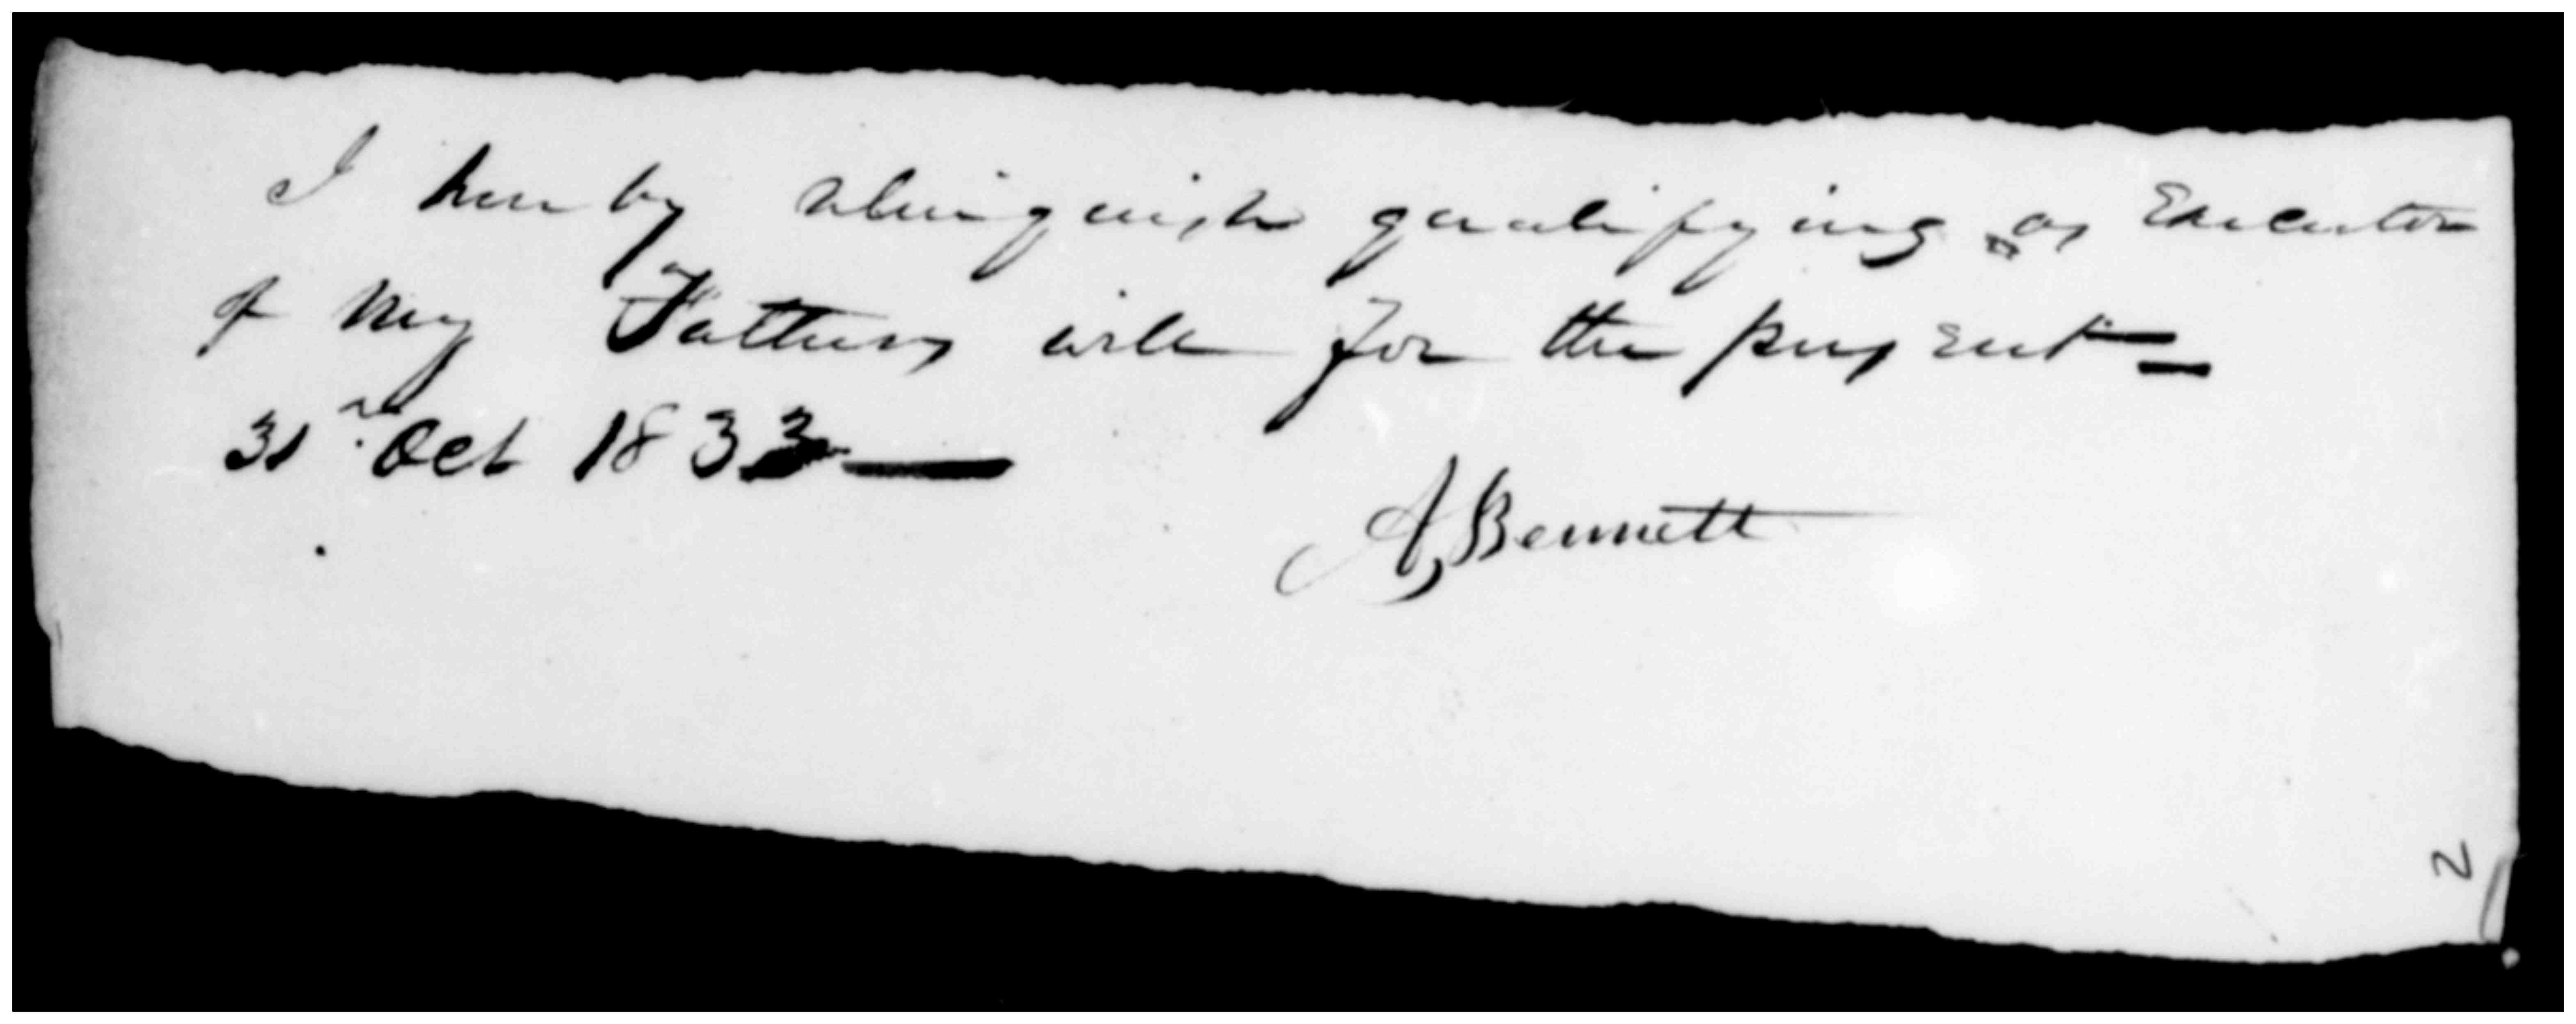 I hereby relinquish qualifying as Executor
of my Fathers will for the present
31st Oct 1833
A, Bennett
2